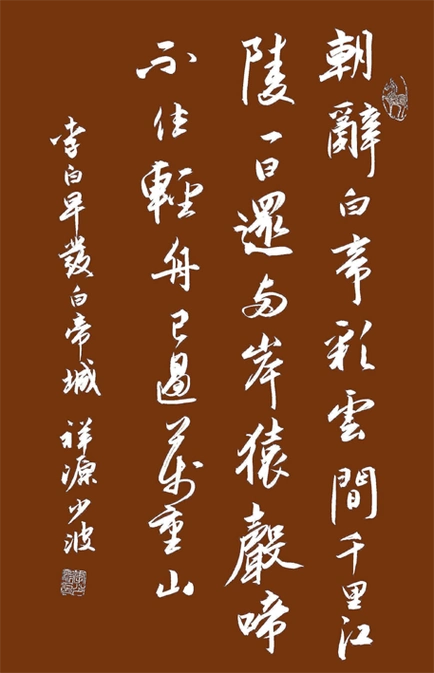 朝辭白帝彩雲間千里江
陵一日還兩岸猿聲啼
不住輕舟已過萬重山
李白早發白帝城 祥源少波